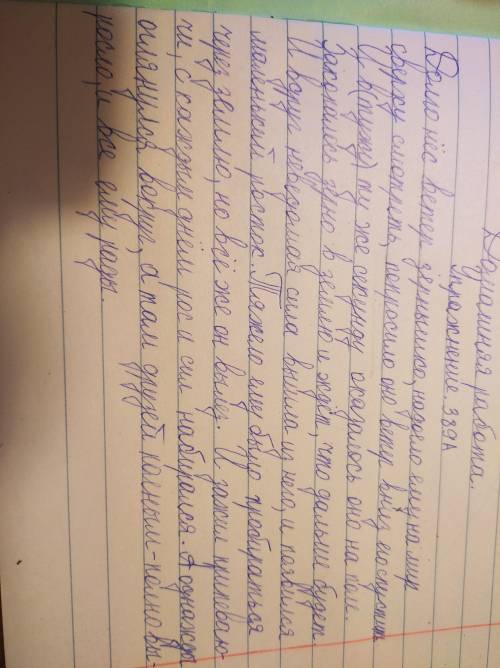 Домашняя работа.
Упражнение. 389А
Долго нёс ветер зёрнышко, надоело ему на мир
сверху смотреть, попросило оно ветер вниз его спустить.
В ту же секунду оказалось оно на поле.
Закопалось зерно в землю и ждёт, что дальше будет.
И вдруг неведомая сила вышла из него, и появился
маленький росток. Тяжело ему было пробираться
через землю, но всё же он вылез. И зажил припеваю-
чи, с каждым днём рос и сил набирался. А однажды
оглянулся вокруг, а там друзей полным-полно вы-
росло, и все ему рады.